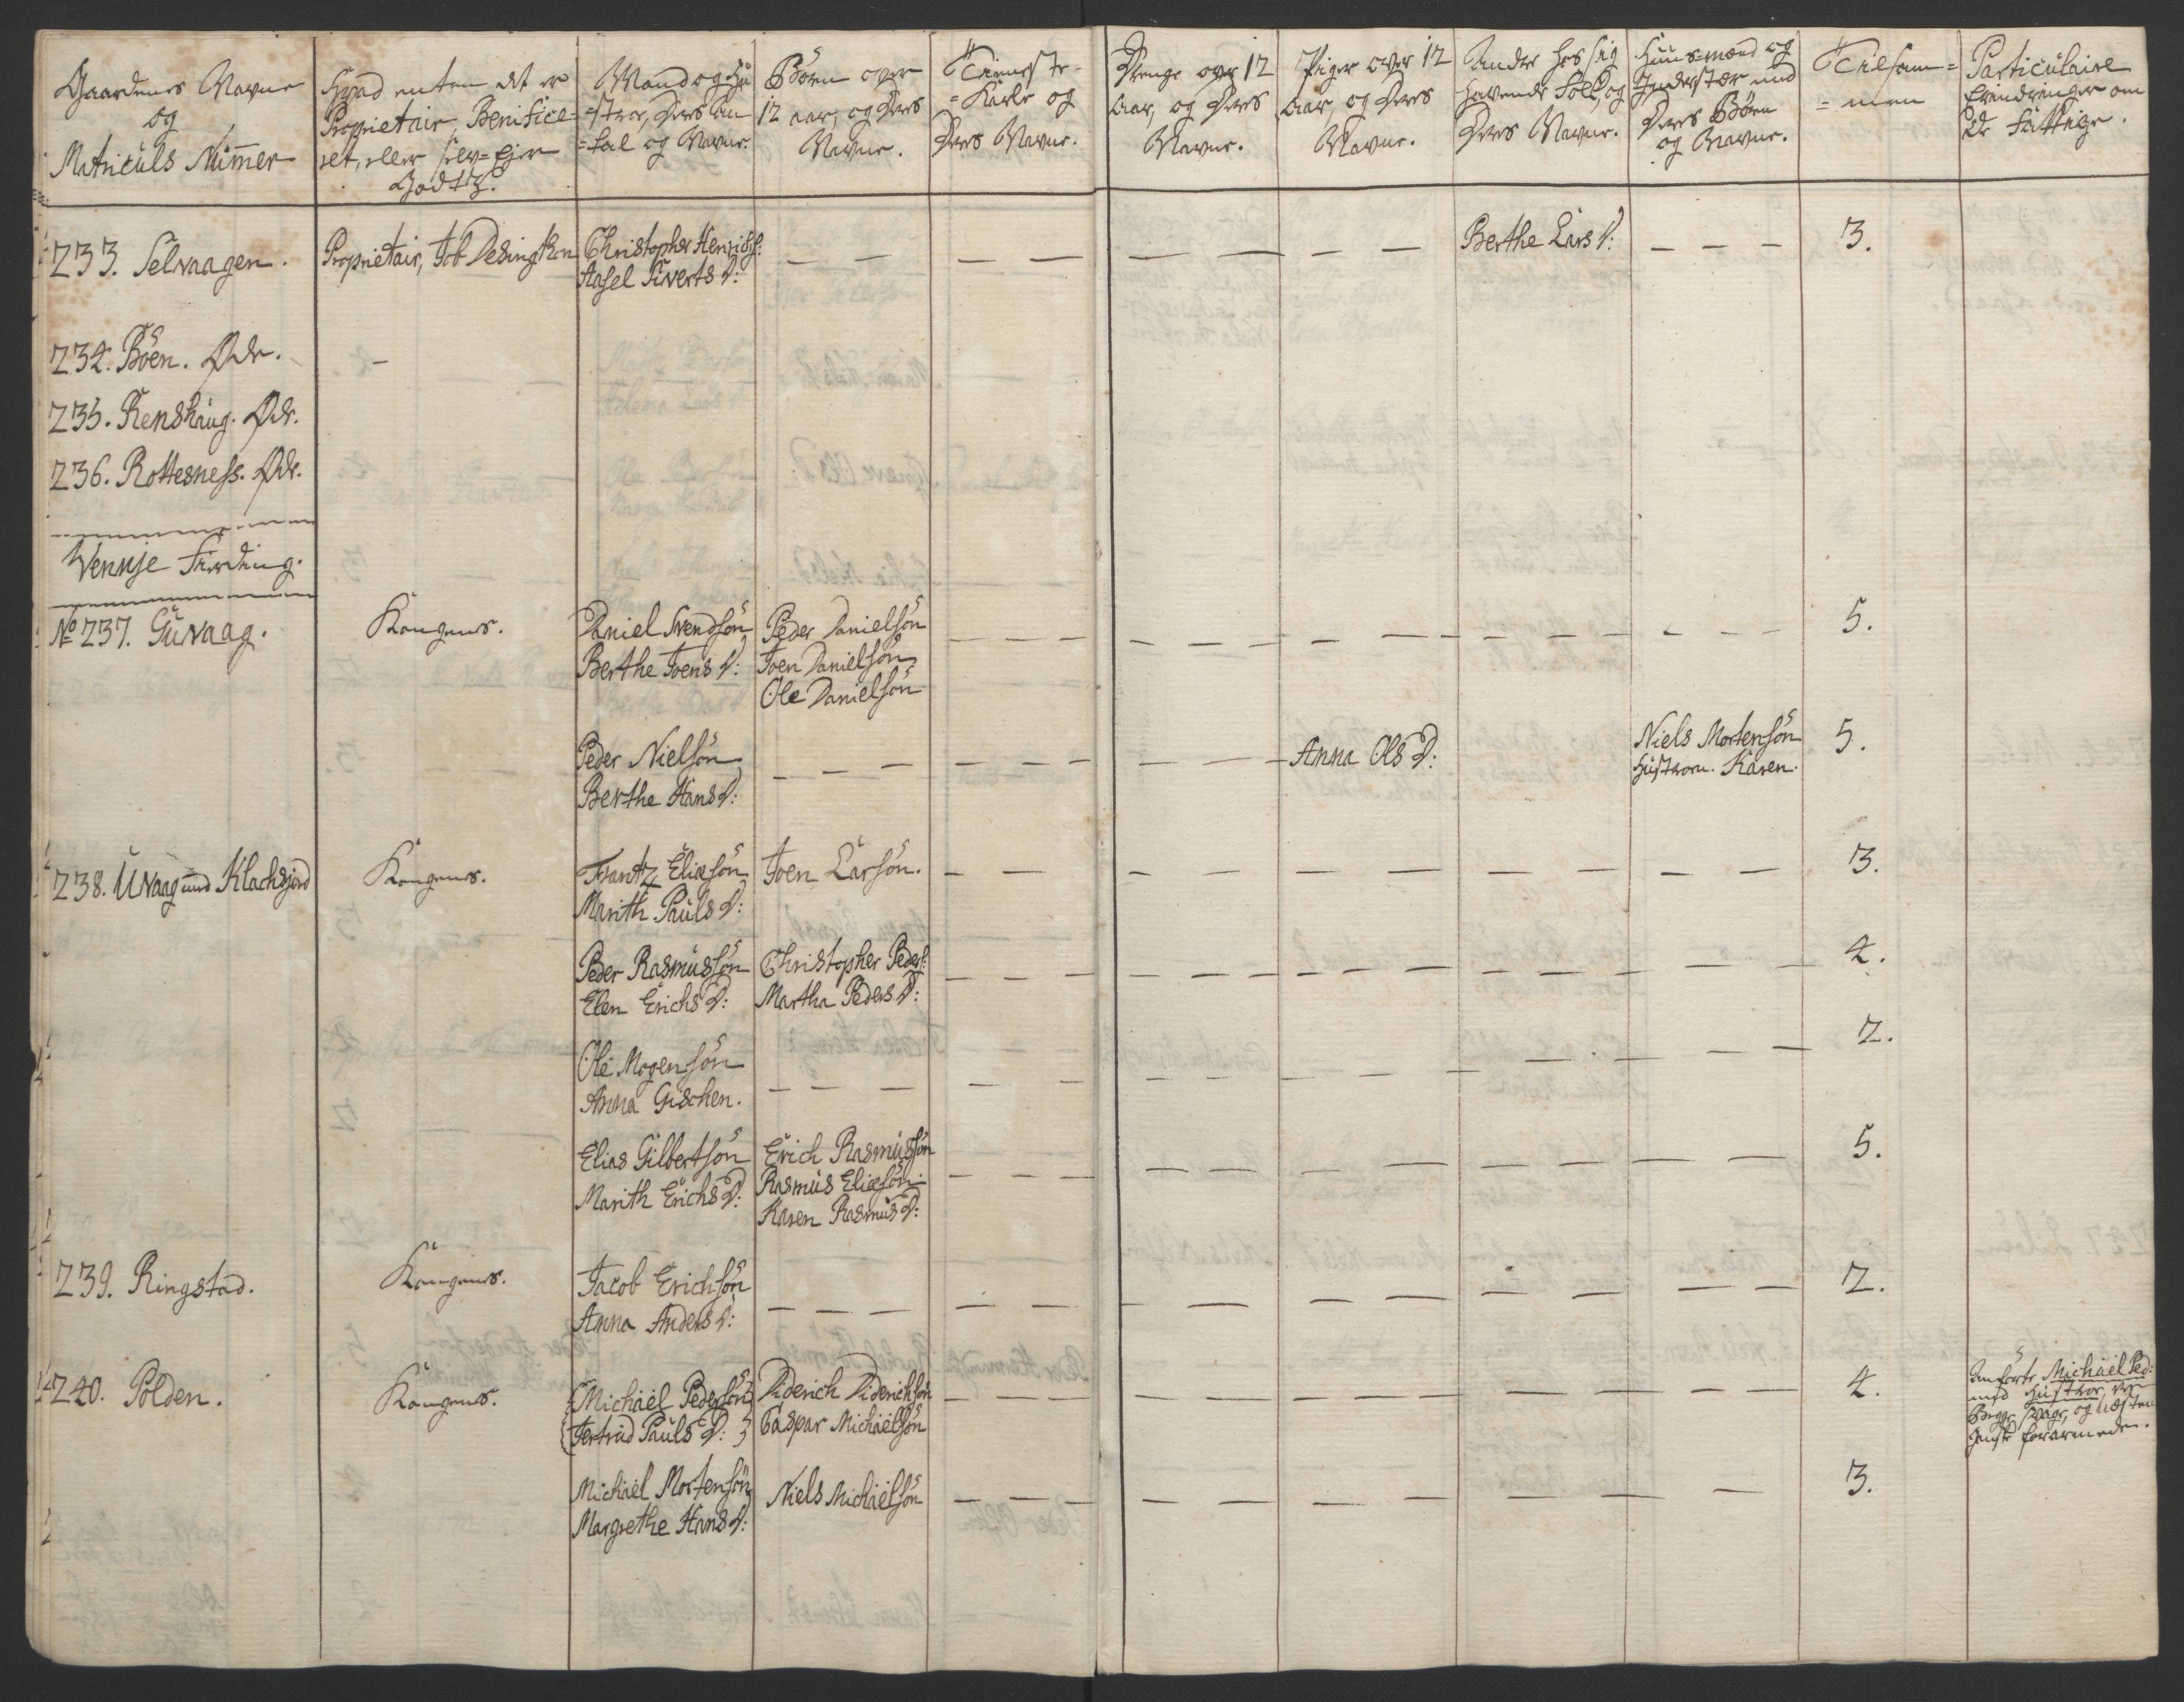 Gaardenes Navne
og
Matriculs Nummer
Hvad enten det er
Proprietair, Benifice-
ret, eller Selv-Eier
Godtz.
Mand og Hu-
=stroe, Deres An-
=tal og Navne.
Börn over
12 aar, og Deres
Navne.
Tienneste-
=Karle og
Deres Navne.
Drenge over 12
Aar, og Deres
Navne.
Piger over 12
Aar, og Deres
Navne.
Andre hos sig
havende Folk, og
Deres Navne.
Huusmænd og
Inderster med
Deres Börn
og Navne.
Tilsam=
=men
Particulaire
Erindringer om
De Fattige.
233. Selvaagen.
Proprietair, Job Desington
Christopher Henrichs:
Aasel Siverts D:
— — — — — — — —
Berthe Lars D:
— — —
3.
234. Böen. Øde. —
235. Renshaug. Øde.
236. Rottesness. Øde.
Wennje Fierding.
No 237. Guvaag.
Kongens.
Daniel Svendsön
Berthe Joens D:
Peder Danielsön
Joen Danielsön
Ole Danielsön
— — — — — — — — —
5.
Peder Nielsön
Berthe Hans D:
— — — — — — — —
Anna Ols D:
Niels Mortensön
Hustroen Karen.
5.
238. Uvaag med Klachsjord
Kongens.
Frantz Eliæsön
Marith Pauls D:
Joen Larsön.
— — — — — — — —
3.
Peder Rasmussön
Elen Erichs D:
Christopher Peders:
Martha Peders D:
— — — — — — — —
4.
Ole Mogensön
Anna Gischen.
— — — — — — — —
2.
Elias Gilbertsön
Marith Erichs D:
Erich Rasmussön
Rasmus Eliæsön
Karen Rasmus D:
— — — — — — — —
5.
239. Ringstad.
Kongens.
Jacob Erichsön
Anna Anders D:
— — — — — — — —
2.
240. Polden.
Kongens.
Michael Pedersön
Giertrud Pauls D:
Diderich Diderichsön
Caspar Michaelsön
— — — — — — — —
4.
Anförte Michael Ped:
med Hustroe, er
Begge svage, og næsten
gandske forarmede.
Michael Mortensön
Margrethe Hans D:
Niels Michaelsön
— — — — — — — —
3.